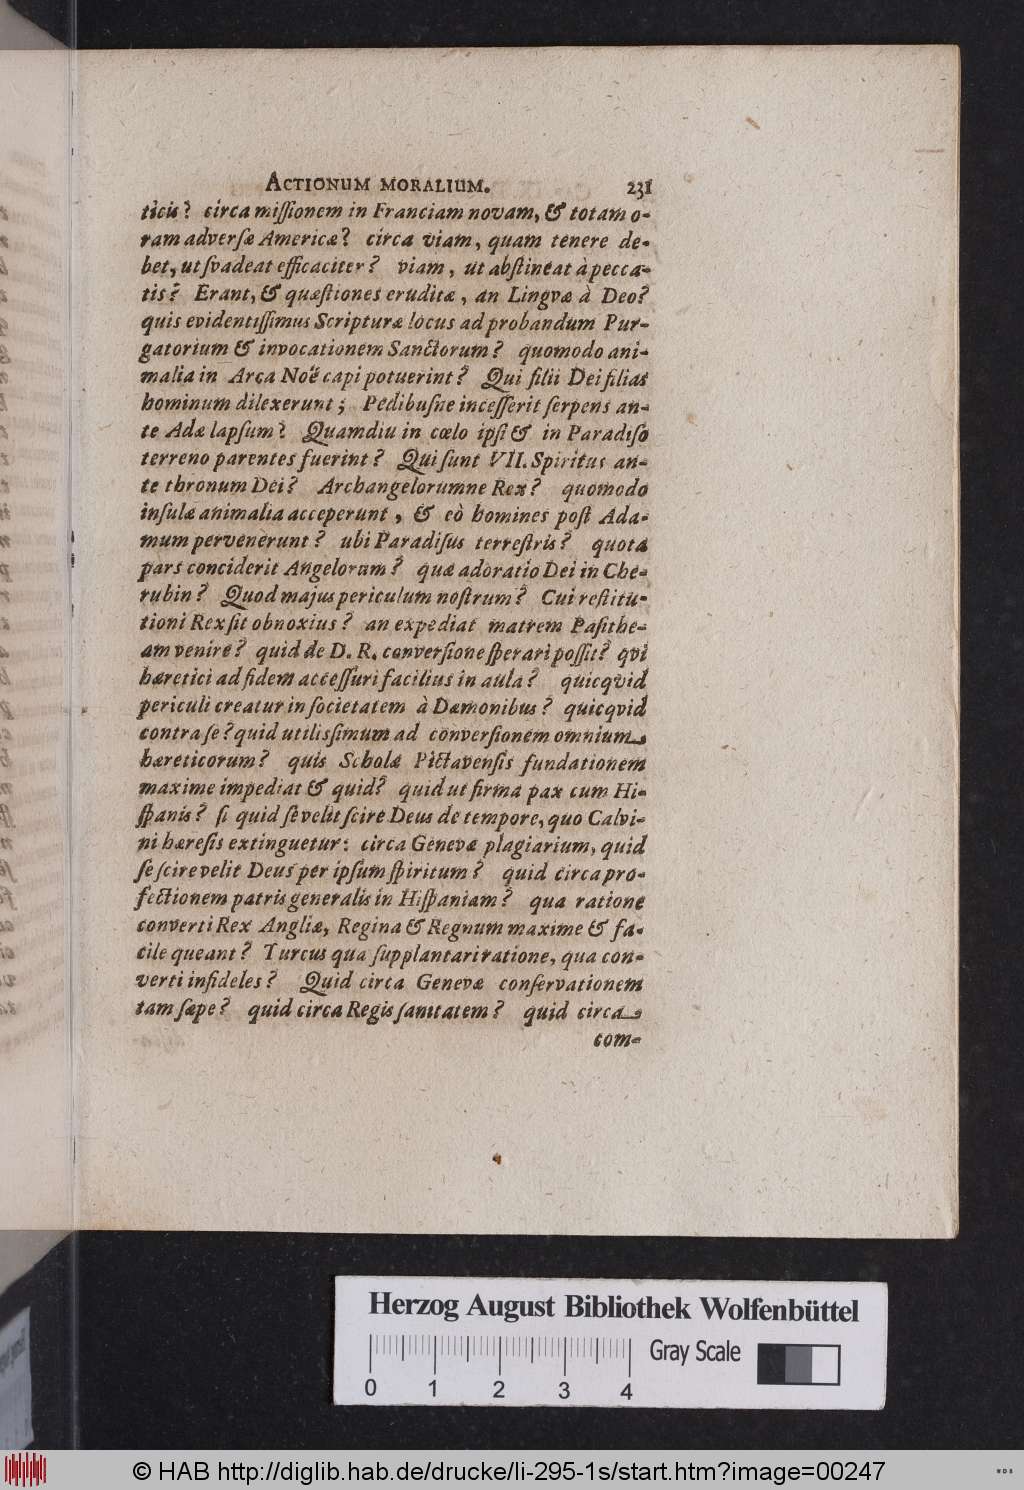 ACTIONUM MORALIUM. 231
ticis? circa missionem in Franciam novam, & totam o-
ram adversæ Americæ? circa viam, quam tenere de-
bet, ut svadeat efficaciter? viam, ut abstineat à pecca-
tis? Erant, & quæstiones eruditæ, an Lingvæ à Deo?
quis evidentissimus Scripturæ locus ad probandum Pur-
gatorium & invocationem Sanctorum? quomodo ani-
malia in Arca Noë capi potuerint? Qui filii Dei filias
hominum dilexerunt; Pedibusne incesserit serpens an-
te Adæ lapsum? Quamdiu in cœlo ipsi & in Paradiso
terreno parentes fuerint? Qui sunt VII. Spiritus an-
te thronum Dei? Archangelorumne Rex? quomodo
insulæ animalia acceperunt, & eò homines post Ada-
mum pervenerunt? ubi Paradisus terrestris? quota
pars conciderit Angelorum? quæ adoratio Dei in Che-
rubin? Quod majus periculum nostrum? Cui restitu-
tioni Rex sit obnoxius? an expediat matrem Pasithe-
am venire? quid de D. R. conversione sperari possit? qvi
hæretici ad fidem accessuri facilius in aula? quicqvid
periculi creatur in societatem à Dæmonibus? quicqvid
contra se? quid utilissimum ad conversionem omnium
hæreticorum? quis Scholæ Pictavensis fundationem
maxime impediat & quid? quid ut firma pax cum Hi-
spanis? si quid se velit scire Deus de tempore, quo Calvi-
ni hæresis extinguetur: circa Genevæ plagiarium, quid
se scire velit Deus per ipsum spiritum? quid circa pro-
fectionem patris generalis in Hispaniam? qua ratione
converti Rex Angliæ, Regina & Regnum maxime & fa-
cile queant? Turcus qua supplantari ratione, qua con-
verti infideles? Quid circa Genevæ conservationem
tam sæpe? quid circa Regis sanitatem? quid circa
com-
Herzog August Bibliothek Wolfenbüttel
Gray Scale
0 1 2 3 4
© HAB http://diglib.hab.de/drucke/li-295-1s/start.htm?image=00247